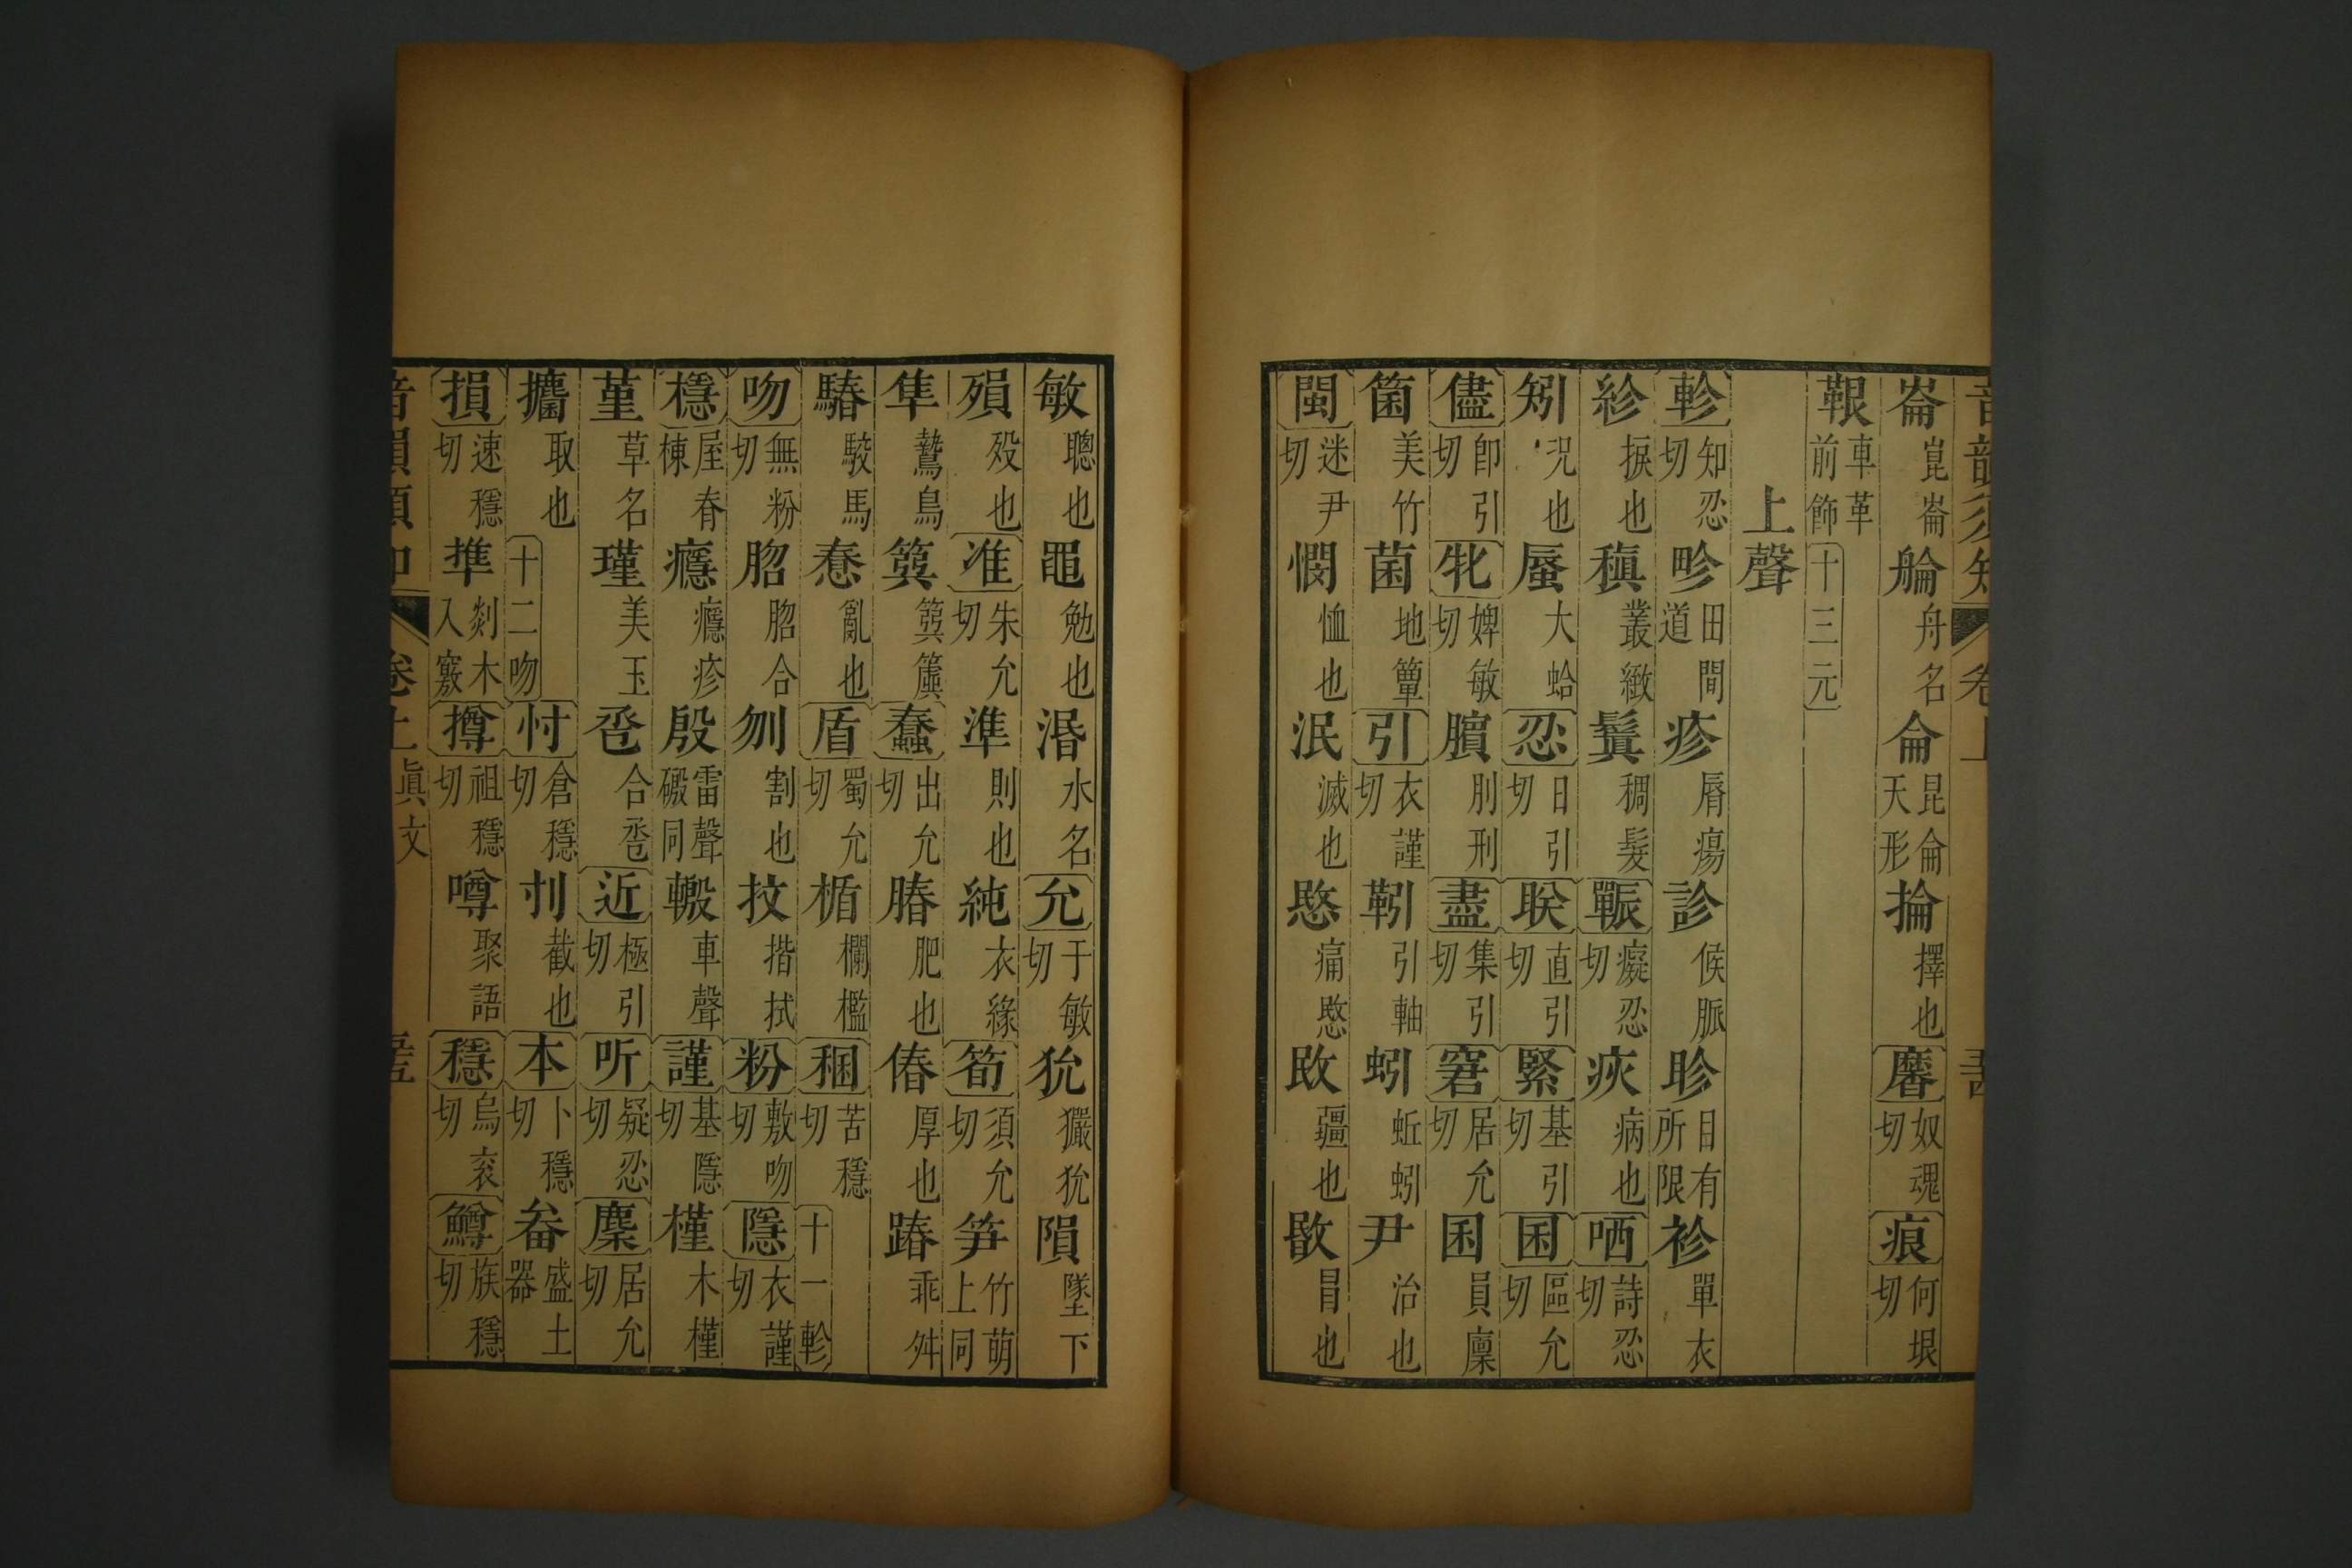 崙崑崙 艑舟名 侖昆侖天形 掄擇也 黁奴魂切 痕何垠切
鞎車革前飾 十三元
上聲
軫知忍切 畛田間道 疹脣瘍 診候脈 眕目有所限 袗單衣
紾捩也 稹叢緻 鬒稠髮 辴癡忍切 疢病也 哂詩忍切
矧況也 蜃大蛤 忍日引切 眹直引切 緊基引切 囷區允切
儘卽引切 牝婢敏切 臏刖刑 盡集引切 窘居允切 囷員廩
箘美竹 菌地蕈 引衣謹切 靷引軸 蚓蚯蚓 尹治也
閩迷尹切 憫恤也 泯滅也 愍痛愍 敃彊也 敯冒也
敏聰也 黽勉也 湣水名 允于敏切 狁玁狁 隕墜下
殞歿也 准朱允切 準則也 純衣緣 筍須允切 笋竹萌上同
隼鷙鳥 簨簨簴 蠢出允切 膞肥也 偆厚也 踳乖舛
騲駿馬 惷亂也 盾蜀允切 楯欄檻 稇苦穩切 十一軫
吻無粉切 脗脗合 刎割也 抆揩拭 粉敷吻切 隱衣謹切
檼屋脊棟 癮癮疹 殷雷聲磤同 轋車聲 謹基隱切 槿木槿
菫草名 瑾美玉 巹合巹 近極引切 听疑忍切 麇居允切
攟取也 十二吻 忖倉穩切 刌截也 本卜穩切 畚盛土器
損速穩切 榫剡木入竅 撙祖穩切 噂聚語 穩烏衮切 鱒族穩切
卷上 眞文